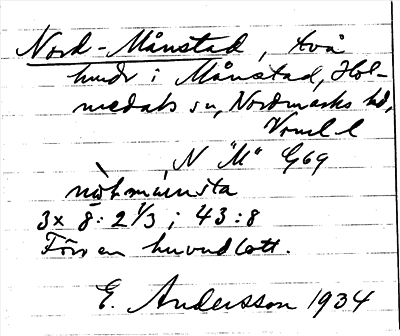 Nord-Månstad, två
hmdr i Månstad, Hol-
medals sn, Nordmarks hd,
Vrml l
N "M" G69
nòlmånsta
3x 8: 2 1/3; 43:8
Förr en huvudlott.
E. Andersson 1934